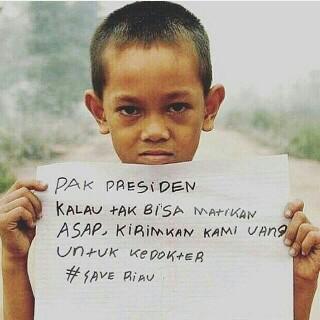 PAK PRESIDEN
KALAU TAK BISA MATIKAN
ASAP, KIRIMKAN KAMI UANG
UNTUK KEDOKTER
#SAVE RIAU